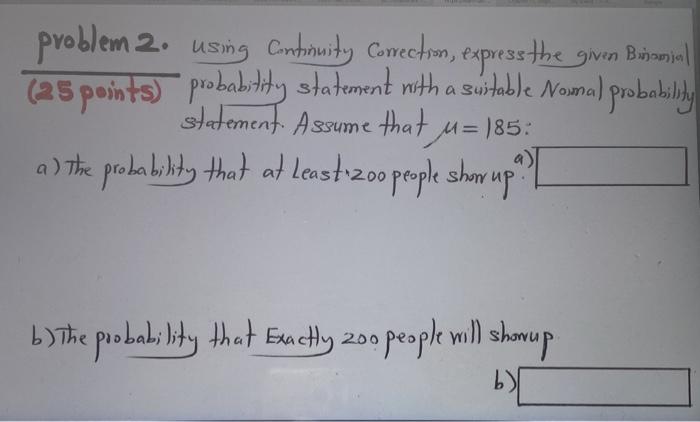 problem 2. using Continuity Correction, express the given Binomial
(25 points) probability statement with a suitable Normal probability
statement. Assume that μ = 185:
a) The probability that at least 200 people show up. a)
b) The probability that Exactly 200 people will show up
b)